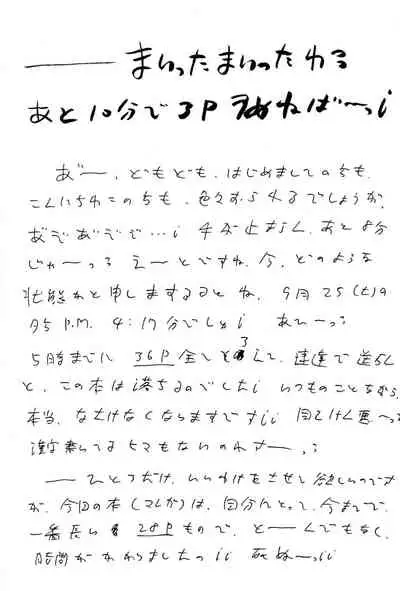 まいったまいったわる
あと10分で3Pうめねばーっ!
あ゛ー、どもども、はじめましてのちも、
こんにちわこのちも、色々おられるでしょうが、
あと8分
じゃーっ えーとですね、今、どのような
状態かと申しますとね、9月25(土)の
P.M. 4:17分でしょ! あひーっ
5時までに 36P全て そろえて、速達で送らん
と、この本は落ちるのでした! いつものことながら、
本当、なさけなくなりますです!! 目もけん悪ーっ
漢字書いてるもないのねさーっ
――ひとつだけ、いいわけをさせて欲しいのです
が、今回の本(コレが)は、自分にとって、今までで
一番長い 28Pもので、とーーんでもなく、
時間がかかりましたの!! 死ぬーっ!!